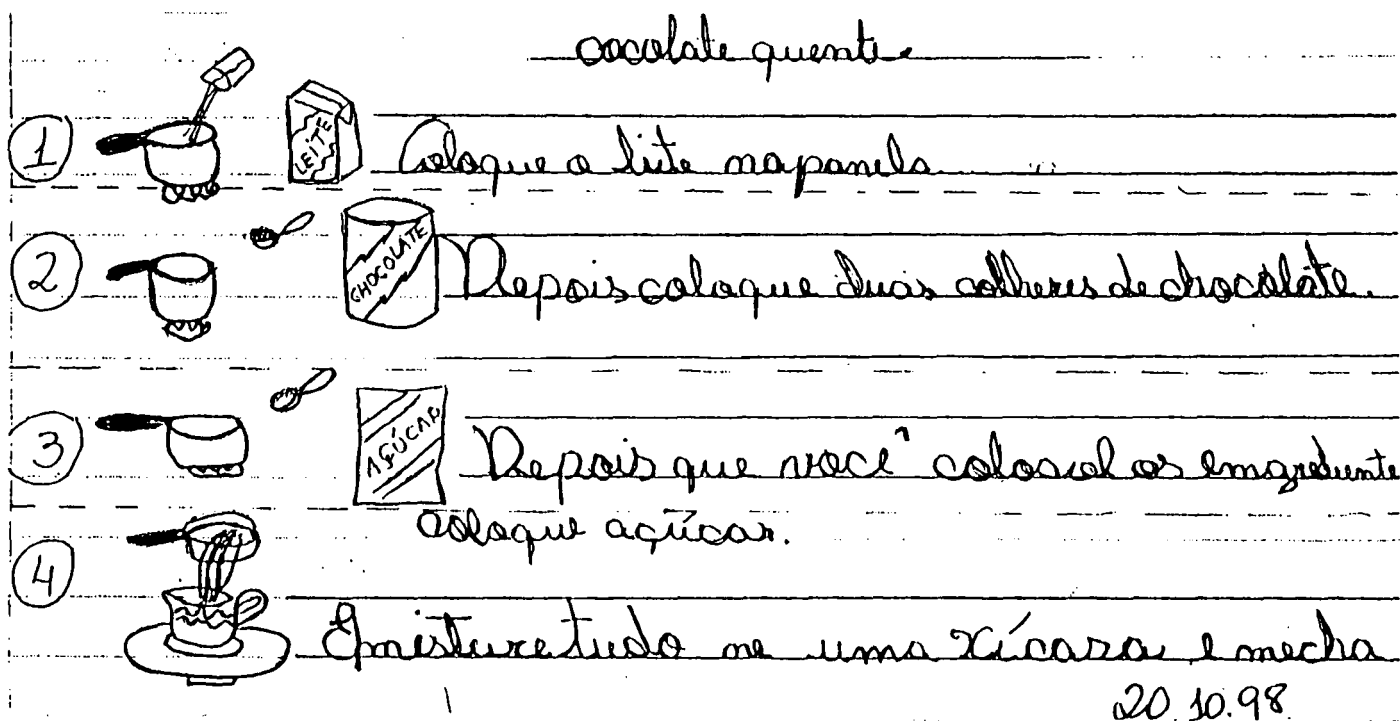 cocolate quente
1 LEITE Coloque o leite napanela
2 CHOCOLATE Depois coloque duas colheres de chocolate.
3 AÇÚCAR Depois que você colocol os emgrediente
coloque açúcar.
4
Emisture tudo ne uma xícara e mecha
20.10.98